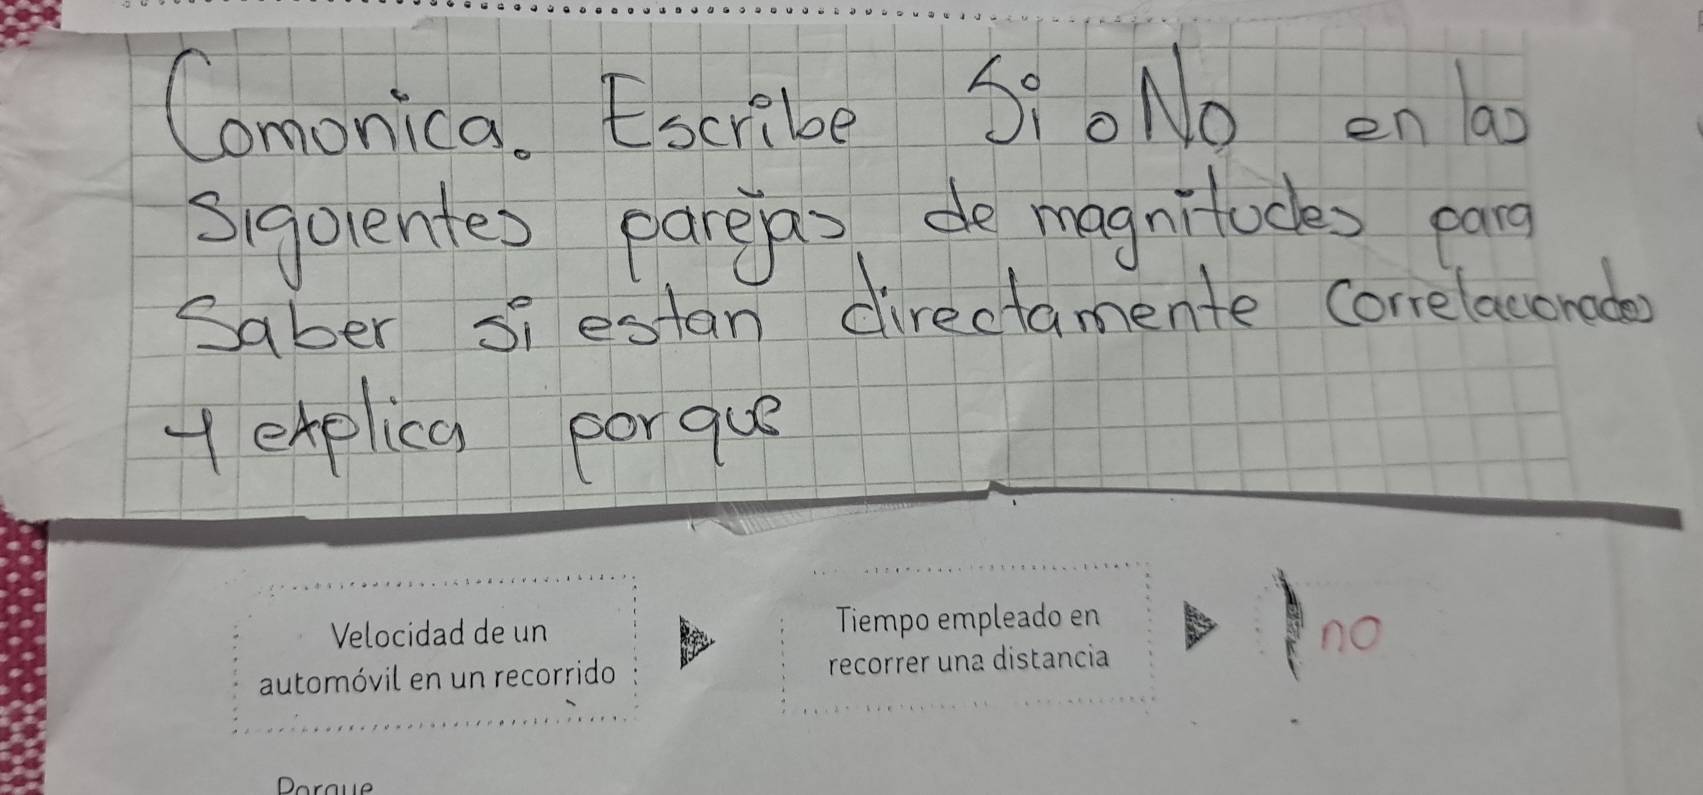 Comonica. Escribe Si o No en las
Sigoientes parejas de magnitodes para
Saber si estan directamente Correlaconados
y explica porque
Velocidad de un
automóvil en un recorrido
Tiempo empleado en
recorrer una distancia
no
Porque